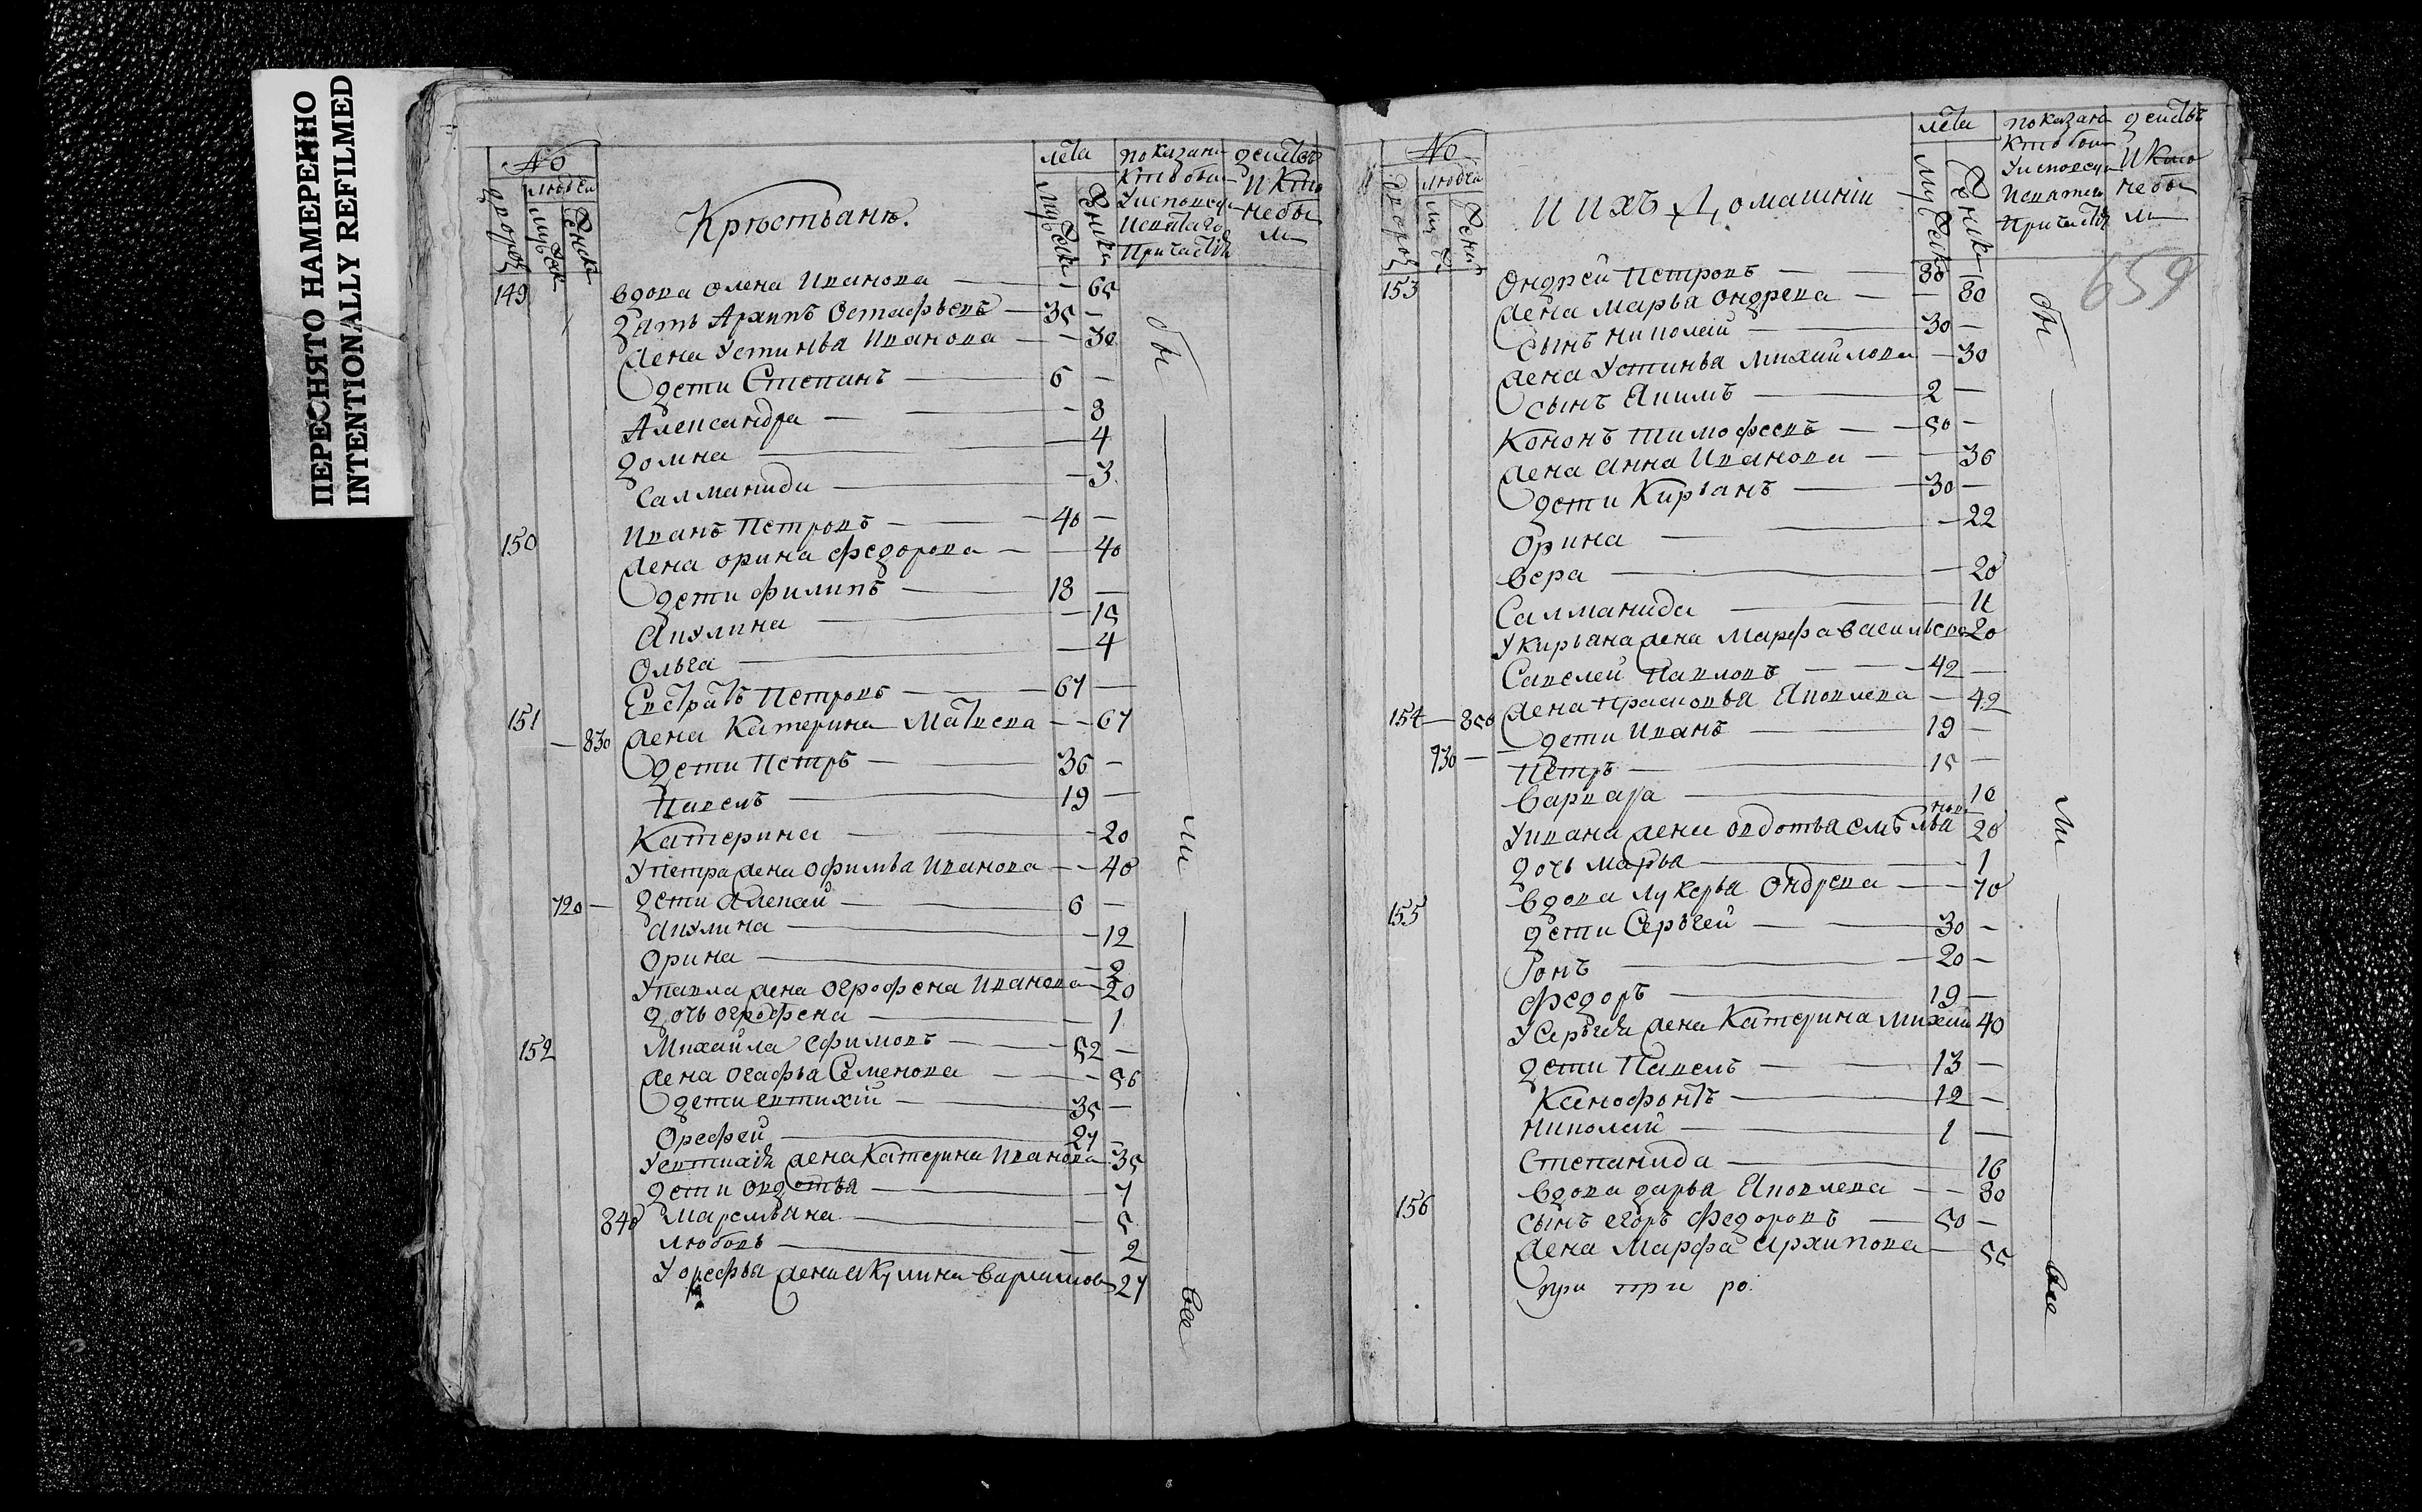 ПЕРЕСНЯТО НАМЕРЕННО
INTENTIONALLY REFILMED
№
людей
дворов
мужеск
женска
Крѣстьянъ.
лета
мужеска
женска
показани
кто были
Уисповеди
Исвтаго
Причастия
действ
И кто
не бы
ли
149
вдова олена Иванова — — 65
зять Архипъ Остафьевъ — 35 —
жена Устинья Иванова — — 30
дети Степанъ — 6 —
Александра — — 8
домна — — 4
Салманида — — 3
150
Иванъ Петровъ — 40 —
жена орина федорова — — 40
дети филипъ — 18 —
Акулина — — 15
Ольга — — 4
151
Евстратъ Петровъ — 67 —
— 830 жена Катерина Матвева — — 67
дети Петръ — 36 —
Павелъ — 19 —
Катерина — — 20
Упетра жена офимья Иванова — — 40
720 — дети Алексей — 6 —
акулина — — 12
Орина — — 2
Упавла жена огрофена Иванова — 20
дочь огрофена — — 1
152
Михайла ефимовъ — 52 —
жена огафья Семенова — — 56
дети евтихий — 35 —
Орефей — 27 —
Уевтихия жена Катерина Иванова — 35
дети овдотья — — 7
840 Маремьяна — — 5
любовь — — 2
У орефья жена акулина варламов 27
бы
ли
все
№
людей
И ИХЪ Домашнiи
лета
показани
кто были
Уисповеди
Исвятаго
Причастия
действ
И кто
не бы
ли
659
153
Ондрей Петровъ — 80
жена Марья ондрева — — 80
Сынъ николай — 30 —
жена Устинья Михайлова — 30
сынъ Якимъ — 2 —
Кононъ тимофеевъ — 50 —
жена анна Иванова — — 36
дети Кирьанъ — 30 —
Орина — — 22
вера — — 20
Салманида — 11
Укирьана жена Марфа васильева 20
Савелей Павловъ — 42 —
154 — 850 жена прасковья Яковлева — 42
дети Иванъ — 19 —
730 — Петръ — 15 —
варвара — 10
Уивана жена овдотья емѣльянова 20
дочь марья — 1
155
вдова лукерья Ондрева — — 70
дети Серьгей — 30 —
Ронъ — 20 —
федоръ — 19 —
У Серьгея жена Катерина михай 40
дети Павелъ — 13 —
Ксанофонтъ — 12 —
николай — 1 —
Степанида — 16
156
вдова дарья Яковлева — — 80
сынъ егоръ федоровъ — 50 —
жена Марфа архипова — 55
при при ро.
бы
ли
все